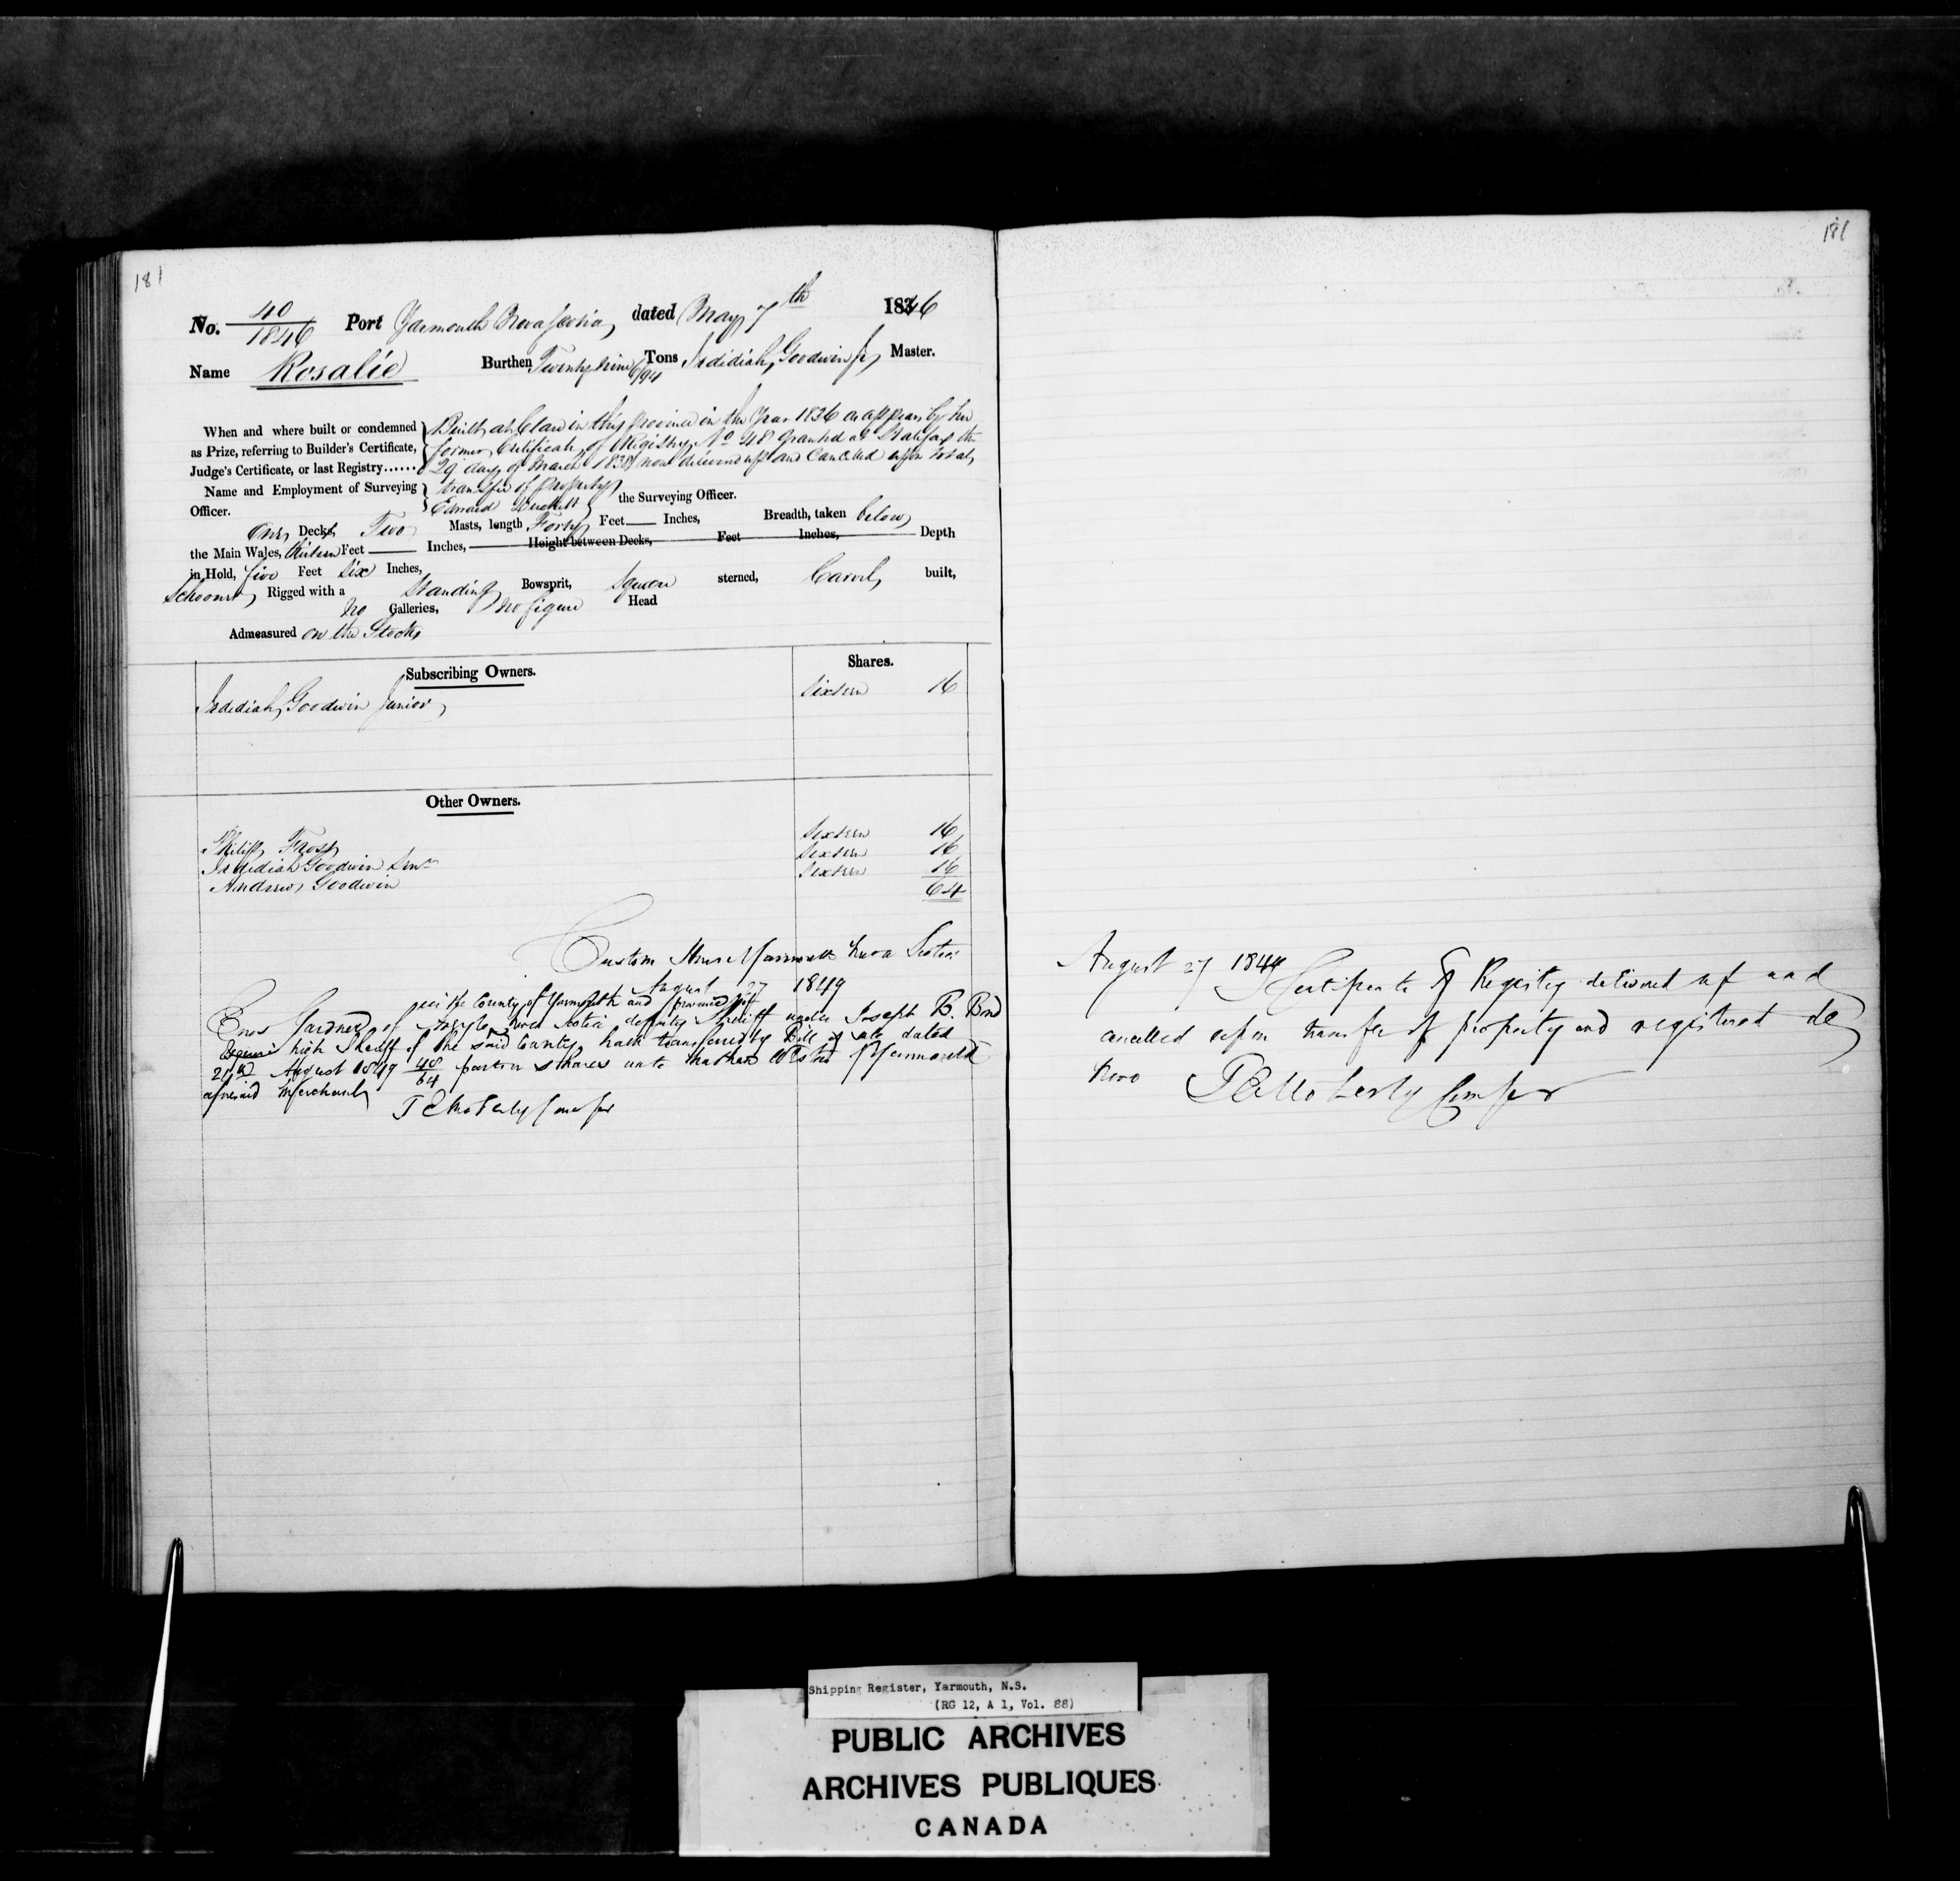 181
181
No. 40/1846 Port Yarmouth Nova Scotia dated May 7th 1846
Name Rosalie Burthen Twenty nine 6/94 Tons Jedidiah Goodwin Jr Master.
When and where built or condemned
as Prize, referring to Builder's Certificate,
Judge's Certificate, or last Registry......
Built at Clare in this Province in the Year 1836 as appears by her
former Certificate of Registry No 48 granted at Halifax the
29 day of March 1838 now delivered up and Cancelled upon total
transfer of Property
Name and Employment of Surveying
Officer.
Edward the Surveying Officer.
One Deck Two Masts, length Forty Feet — Inches, Breadth, taken below
the Main Wales, thirteen Feet — Inches, Height between Decks, Feet Inches, Depth
in Hold, five Feet Six Inches,
Schooner Rigged with a Standing Bowsprit, Square sterned, Carvel built,
No Galleries, No figure Head
Admeasured on the Stocks
Subscribing Owners. Shares.
Jedidiah Goodwin Junior Sixteen 16
Other Owners.
Philip Frost Sixteen 16
Jedidiah Goodwin Senr Sixteen 16
Andrew Goodwin Sixteen 16
64
Custom House Yarmouth Nova Scotia
August 27 1849
in the County of Yarmouth and province of
Enos Gardner of Argyle Nova Scotia deputy Sheriff under Joseph B. Bond
Esquire high Sheriff of the said County hath transferred by Bill of sale dated
21st August 1849 48/64 parts or shares unto Nathan Yarmouth
aforesaid Merchant
August 27 1849 Certificate of Registry delivered up and
cancelled upon transfer of property and registered de
novo
Shipping Register, Yarmouth, N.S.
(RG 12, A 1, Vol. 88)
PUBLIC ARCHIVES
ARCHIVES PUBLIQUES
CANADA